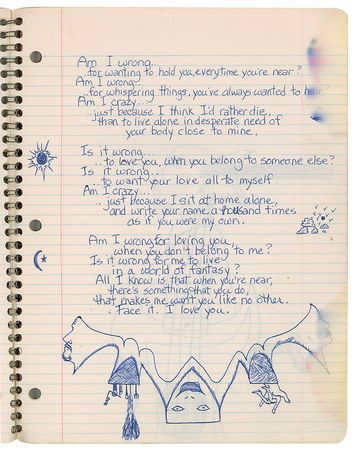 Am I wrong...
...for wanting to hold you, everytime you're near?
Am I wrong?
...for whispering things, you've always wanted to hear?
Am I crazy...
...just because I think I'd rather die,
than to live alone in desperate need of
your body close to mine.
Is it wrong...
...to love you, when you belong to someone else?
Is it wrong...
...to want your love all to myself.
Am I crazy...
...just because I sit at home alone,
and write your name a thousand times
as if you were my own.
Am I wrong for loving you,
when you don't belong to me?
Is it wrong for me to live
in a world of fantasy?
All I know is that when you're near,
there's something that you do,
that makes me want you like no other.
Face it. I love you.